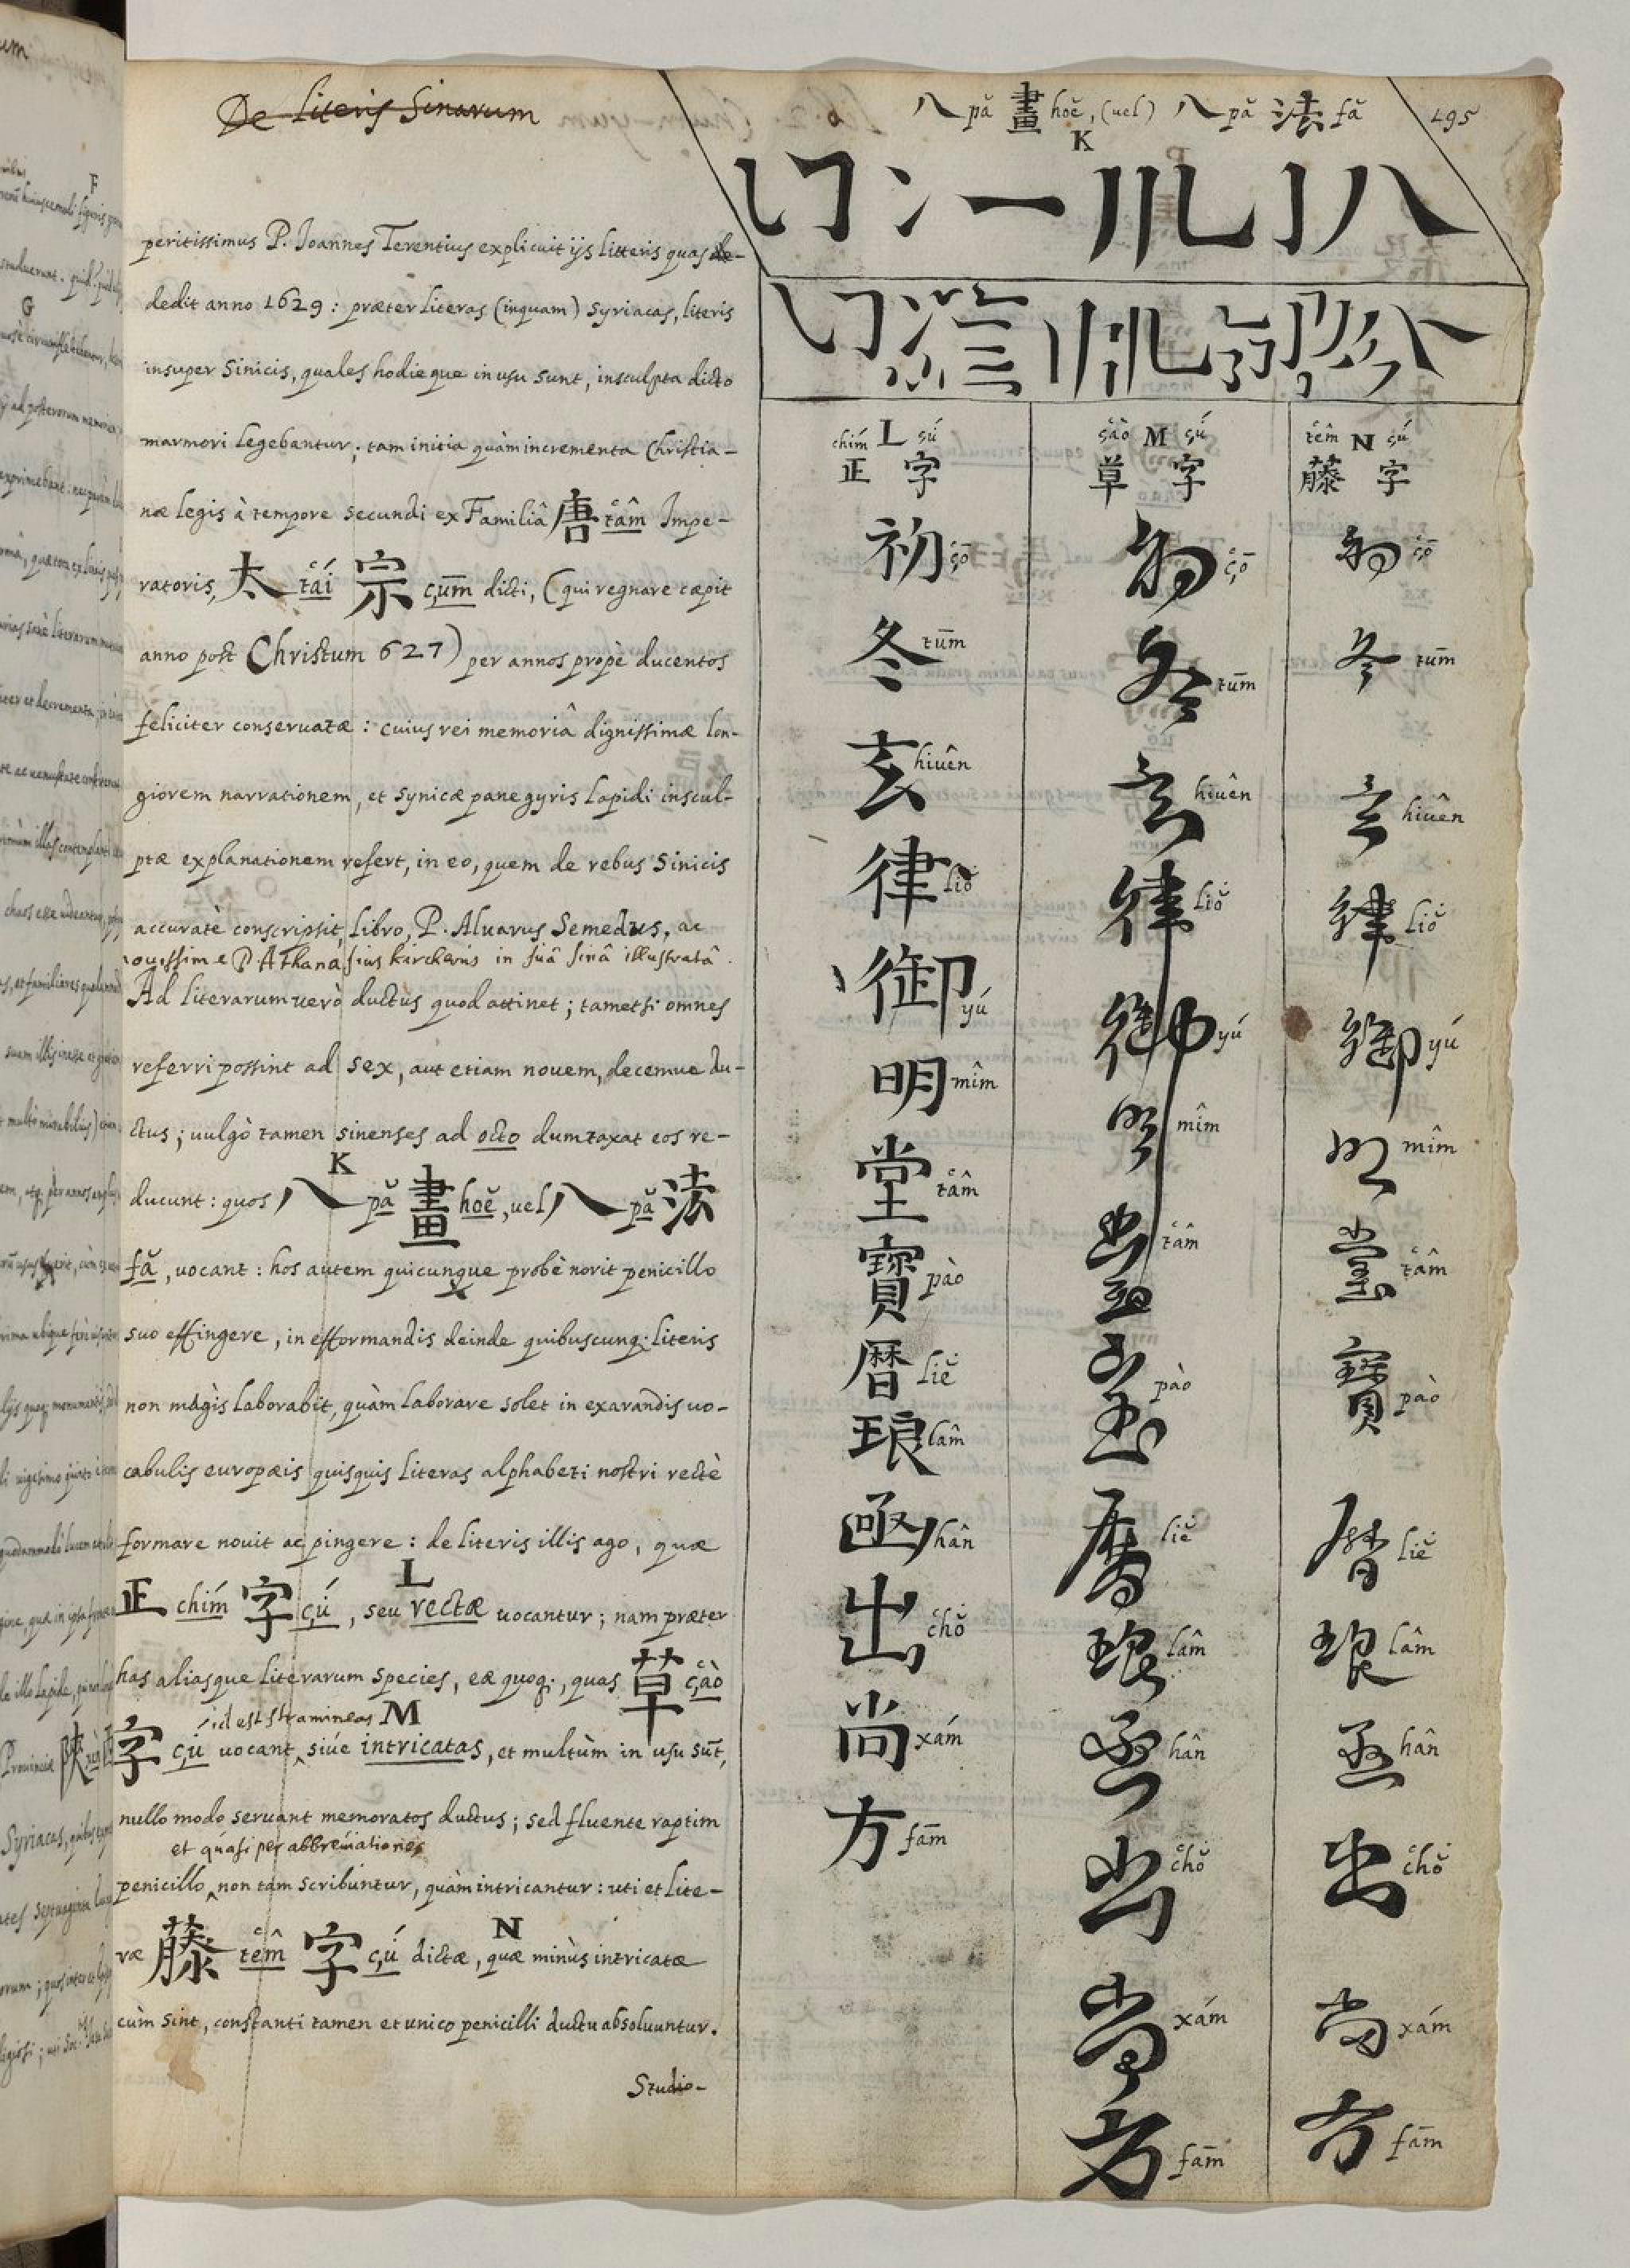 De literis Sinarum
peritissimus P. Joannes Terentius explicuit ijs litteris quas
dedit anno 1629 : præter literas (inquam) Syriacas, literis
insuper Sinicis, quales hodieque in usu sunt, insculpta dicto
marmori legebantur ; tam initia quàm incrementa Christia-
næ legis à tempore secundi ex Familiâ 唐 tâm Impe-
ratoris, 太 tái 宗 çūm dicti, (qui regnare cœpit
anno post Christum 627) per annos propè ducentos
feliciter conservatæ : cuius rei memoriâ dignissimæ lon-
giorem narrationem, et synicæ panegyris lapidi inscul-
ptæ explanationem refert, in eo, quem de rebus Sinicis
accuratè conscripsit, libro, P. Aluarus Semedus, ac
nouissime P. Athanasius Kircherus in suâ sinâ illustratâ.
Ad literarum uerò ductus quod attinet ; tametsi omnes
referri possint ad sex, aut etiam nouem, decemue du-
ctus ; uulgò tamen sinenses ad octo dumtaxat eos re-
K
ducunt : quos 八 pă 畫 hoĕ, uel 八 pă 法
fă, uocant : hos autem quicunque probè norit penicillo
suo effingere, in efformandis deinde quibuscunq; literis
non màgis laborabit, quàm laborare solet in exarandis uo-
cabulis europæis quisquis literas alphabeti nostri rectè
formare nouit ac pingere : de literis illis ago, quæ
L
正 chím 字 çú, seu rectæ uocantur ; nam præter
has aliasque literarum species, eæ quoq;, quas 草 çào
id est stramineas M
字 çú uocant siúe intricatas, et multùm in usu sūt,
nullo modo seruant memoratos ductus ; sed fluente raptim
et quasi per abbreuiationes
penicillo non tam scribuntur, quàm intricantur : uti et lite-
N
ræ 藤 têm 字 çú dictæ, quæ minùs intricatæ
cùm sint, constanti tamen et unico penicilli ductu absoluuntur.
Studio-
八 pă 畫 hoĕ, (uel) 八 pă 法 fă
K
495
chím L çú
正 字
初 çō
冬 tūm
玄 hiuên
律 liŏ
御 yú
明 mîm
堂 tâm
寶 pào
曆 liĕ
琅 lâm
函 hân
出 chŏ
尚 xám
方 fām
çào M çú
草 字
初 çō
冬 tūm
玄 hiuên
律 liŏ
御 yú
明 mîm
堂 tâm
寶 pào
曆 liĕ
琅 lâm
函 hân
出 chŏ
尚 xám
方 fām
têm N çú
藤 字
初 çō
冬 tūm
玄 hiuên
律 liŏ
御 yú
明 mîm
堂 tâm
寶 pào
曆 liĕ
琅 lâm
函 hân
出 chŏ
尚 xám
方 fām